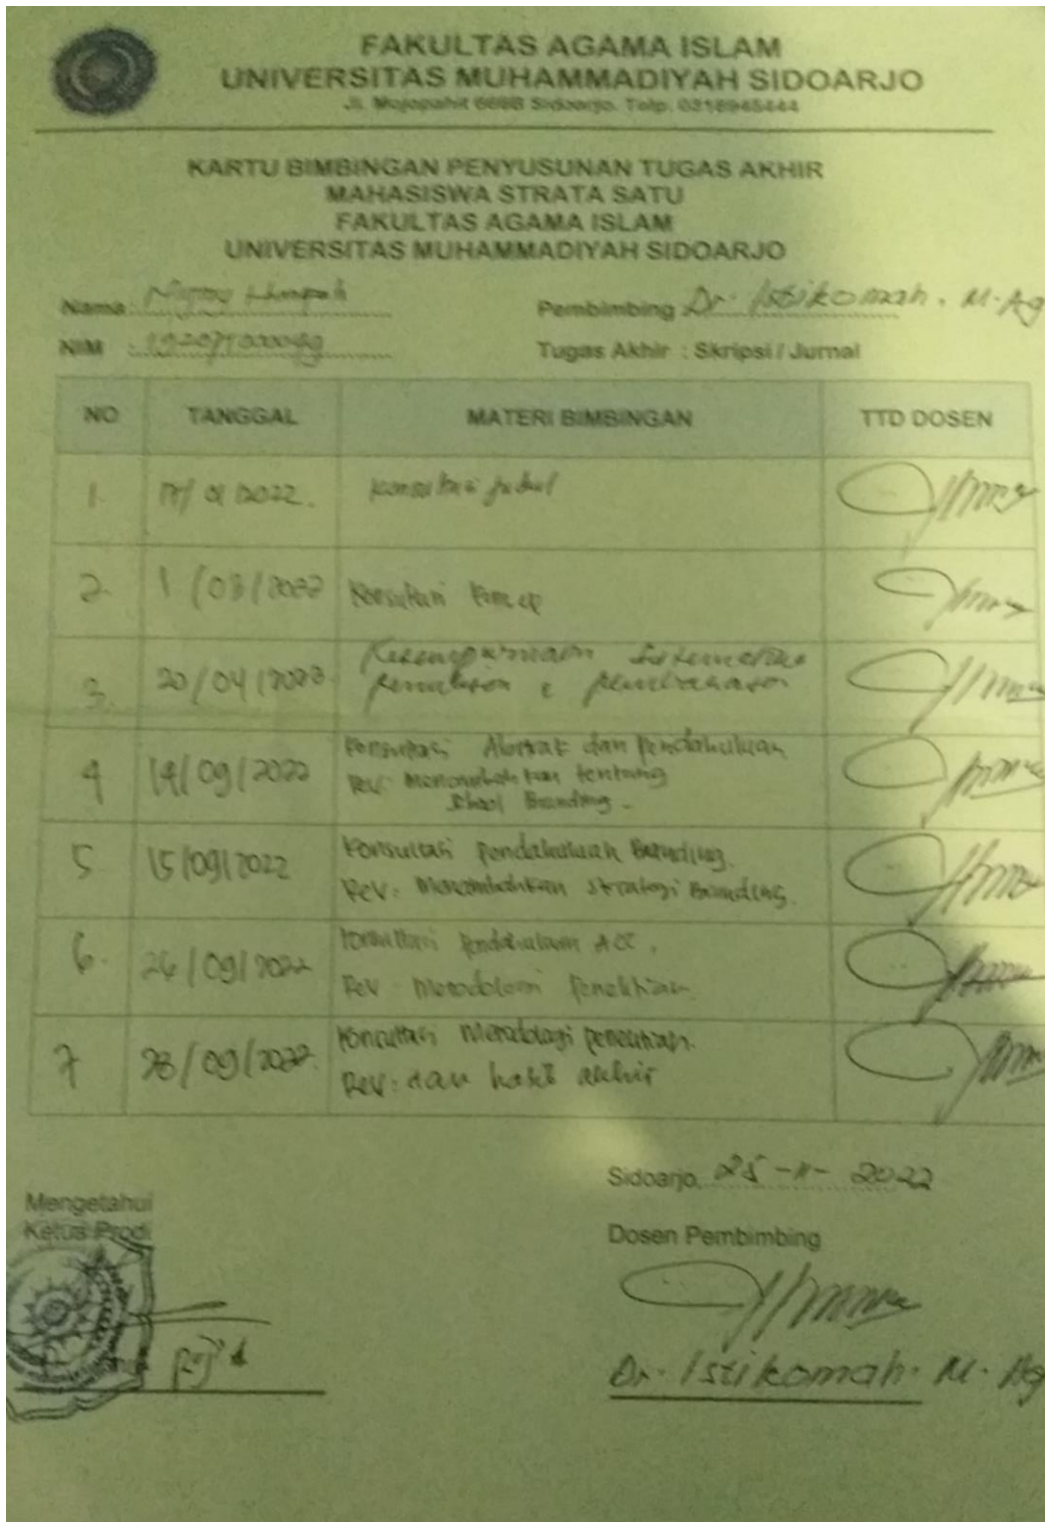 FAKULTAS AGAMA ISLAM
UNIVERSITAS MUHAMMADIYAH SIDOARJO
Jl. Mojopahit 666B Sidoarjo. Telp. 0318945444
KARTU BIMBINGAN PENYUSUNAN TUGAS AKHIR
MAHASISWA STRATA SATU
FAKULTAS AGAMA ISLAM
UNIVERSITAS MUHAMMADIYAH SIDOARJO
Nama :
Pembimbing Dr. Istikomah. M. Ag
NIM :
Tugas Akhir : Skripsi / Jurnal
NO TANGGAL MATERI BIMBINGAN TTD DOSEN
1. /2022. Konsultasi judul
2. 1 /03/2022 Konsultasi
3. 20/04/2022
penulisan &
4 14/09/2022 Konsultasi Abstrak dan Pendahuluan
Rev: Menambahkan tentang
School Branding.
5 15/09/2022 Konsultasi Pendahuluan Branding.
Rev: Menambahkan Strategi Branding.
6. 26/09/2022 Konsultasi Pendahuluan ACC,
Rev Penelitian
7 28/09/2022 Konsultasi penelitian.
Rev: dan hasil akhir
Sidoarjo, 25 -11- 2022
Mengetahui
Ketua Prodi
Dosen Pembimbing
Dr. Istikomah. M. Ag